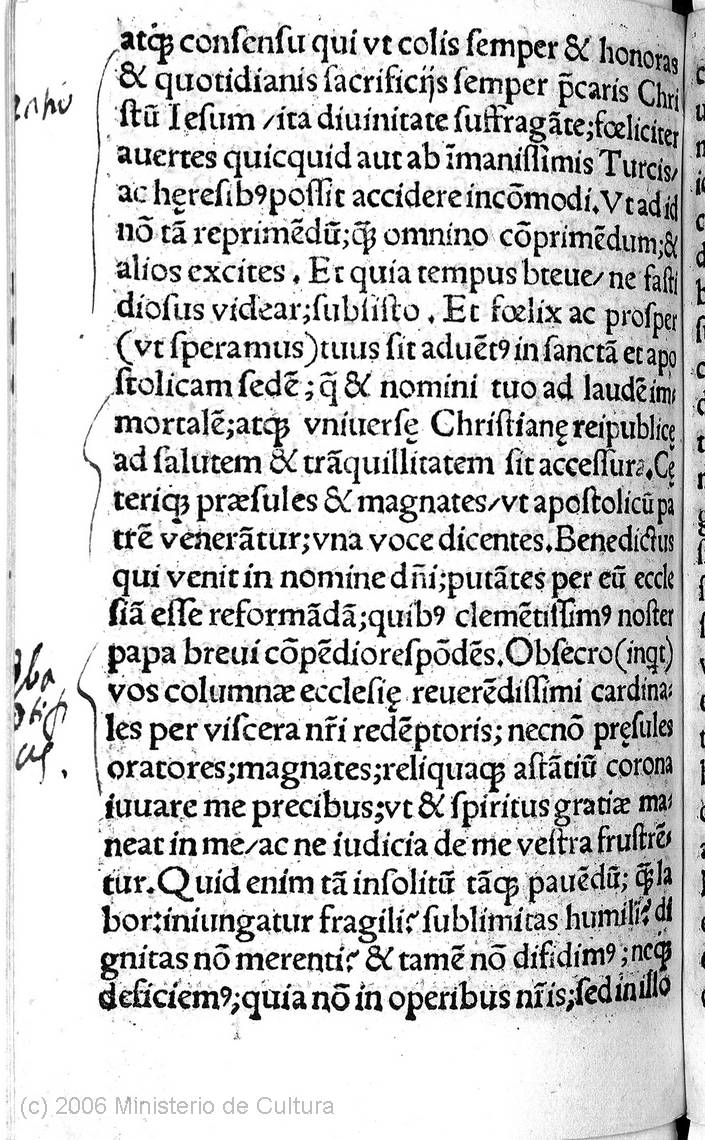 atq̃ consensu qui vt colis semper & honoras
& quotidianis sacrificijs semper p̃caris Chri
stũ Iesum /ita diuinitate suffragãte;fœliciter
auertes quicquid aut ab ĩmanissimis Turcis/
ac hęresibꝰ possit accidere incõmodi.Vt ad id
nõ tã reprimẽdũ;q̃ omnino cõprimẽdum;&
alios excites . Et quia tempus breue/ne fasti
diosus videar;subsisto . Et fœlix ac prosper
(vt speramus)tuus sit aduẽtꝰ in sanctã et apo
stolicam sedẽ ; q̃ & nomini tuo ad laudẽ im⸗
mortalẽ;atq̃ vniuersę Christianę reipublicę
ad salutem & trãquillitatem sit accessura.Cę
teriq̃ præsules & magnates/vt apostolicũ pa
trẽ venerãtur;vna voce dicentes.Benedictus
qui venit in nomine dñi;putãtes per eũ eccle
siã esse reformãdã;quibꝰ clemẽtissimꝰ noster
papa breui cõpẽdio respõdẽs.Obsecro(inqt)
vos columnæ ecclesię reuerẽdissimi cardina⸗
les per viscera nr̃i redẽptoris; necnõ pręsules
oratores;magnates;reliquaq̃ astãtiũ corona
iuuare me precibus;vt & spiritus gratiæ ma⸗
neat in me/ac ne iudicia de me vestra frustrẽ⸗
tur.Quid enim tã insolitũ tãq̃ pauẽdũ; q̃ la
bor:iniungatur fragili? sublimitas humili? di
gnitas nõ merenti? & tamẽ nõ difidimꝰ ; neq̃
deficiemꝰ;quia nõ in operibus nr̃is;sed in illo
(c) 2006 Ministerio de Cultura